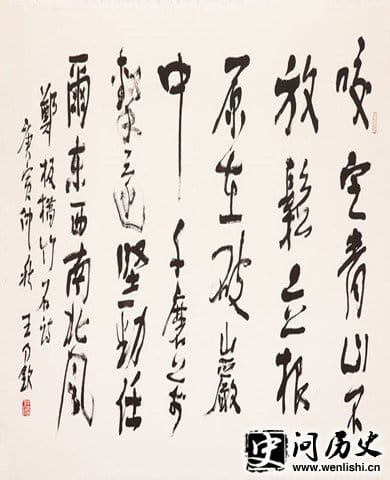 咬定青山不
放鬆立根
原在破巖
中千磨万
擊還堅勁任
爾東西南北風
鄭板橋竹石詩
庚寅仲秋 王
史 问历史
www.wenlishi.cn